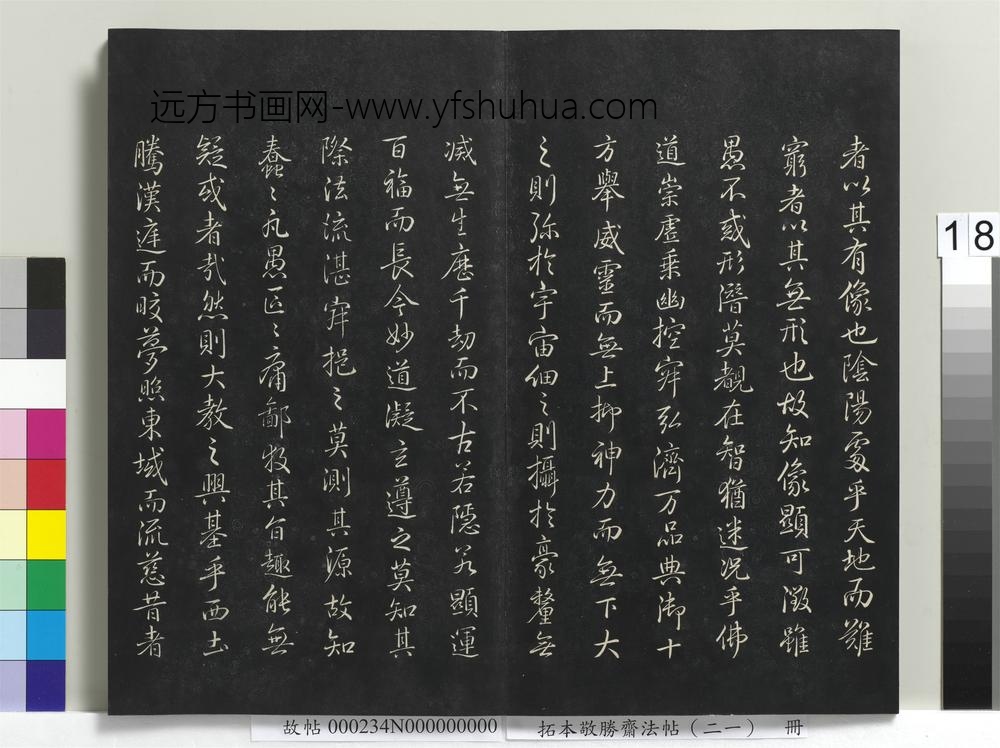 远方书画网-www.yfshuhua.com
者以其有像也陰陽處乎天地而難
窮者以其無形也故知像顯可徵雖
愚不惑形潛莫覩在智猶迷况乎佛
道崇虛乗幽控寂弘濟万品典御十
方舉威靈而無上抑神力而無下大
之則弥於宇宙細之則攝於豪釐無
滅無生歷千劫而不古若隱若顯運
百福而長今妙道凝玄遵之莫知其
際法流湛寂挹之莫測其源故知
蠢〻凡愚區〻庸鄙投其旨趣能無
疑或者哉然則大教之興基乎西土
騰漢庭而皎夢照東域而流慈昔者
18
故帖 000234N000000000
拓本敬勝齋法帖（二一） 冊